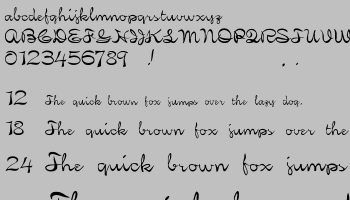 abcdefghijklmnopqrstuvwxyz
ABCDEFGHIJKLMNOPQRSTUVW
0123456789 ! . .
12 The quick brown fox jumps over the lazy dog.
18 The quick brown fox jumps over the
24 The quick brown fox jumps